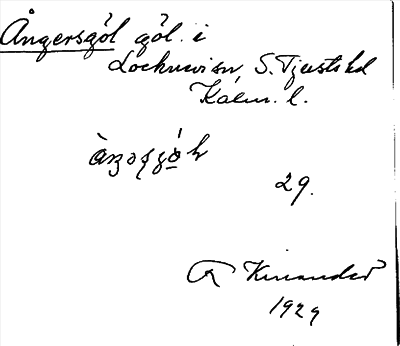 Ångersgöl göl. i
Locknevi sn, S. Tjusts hd
Kalm. l.
29.
R Kinander
1929